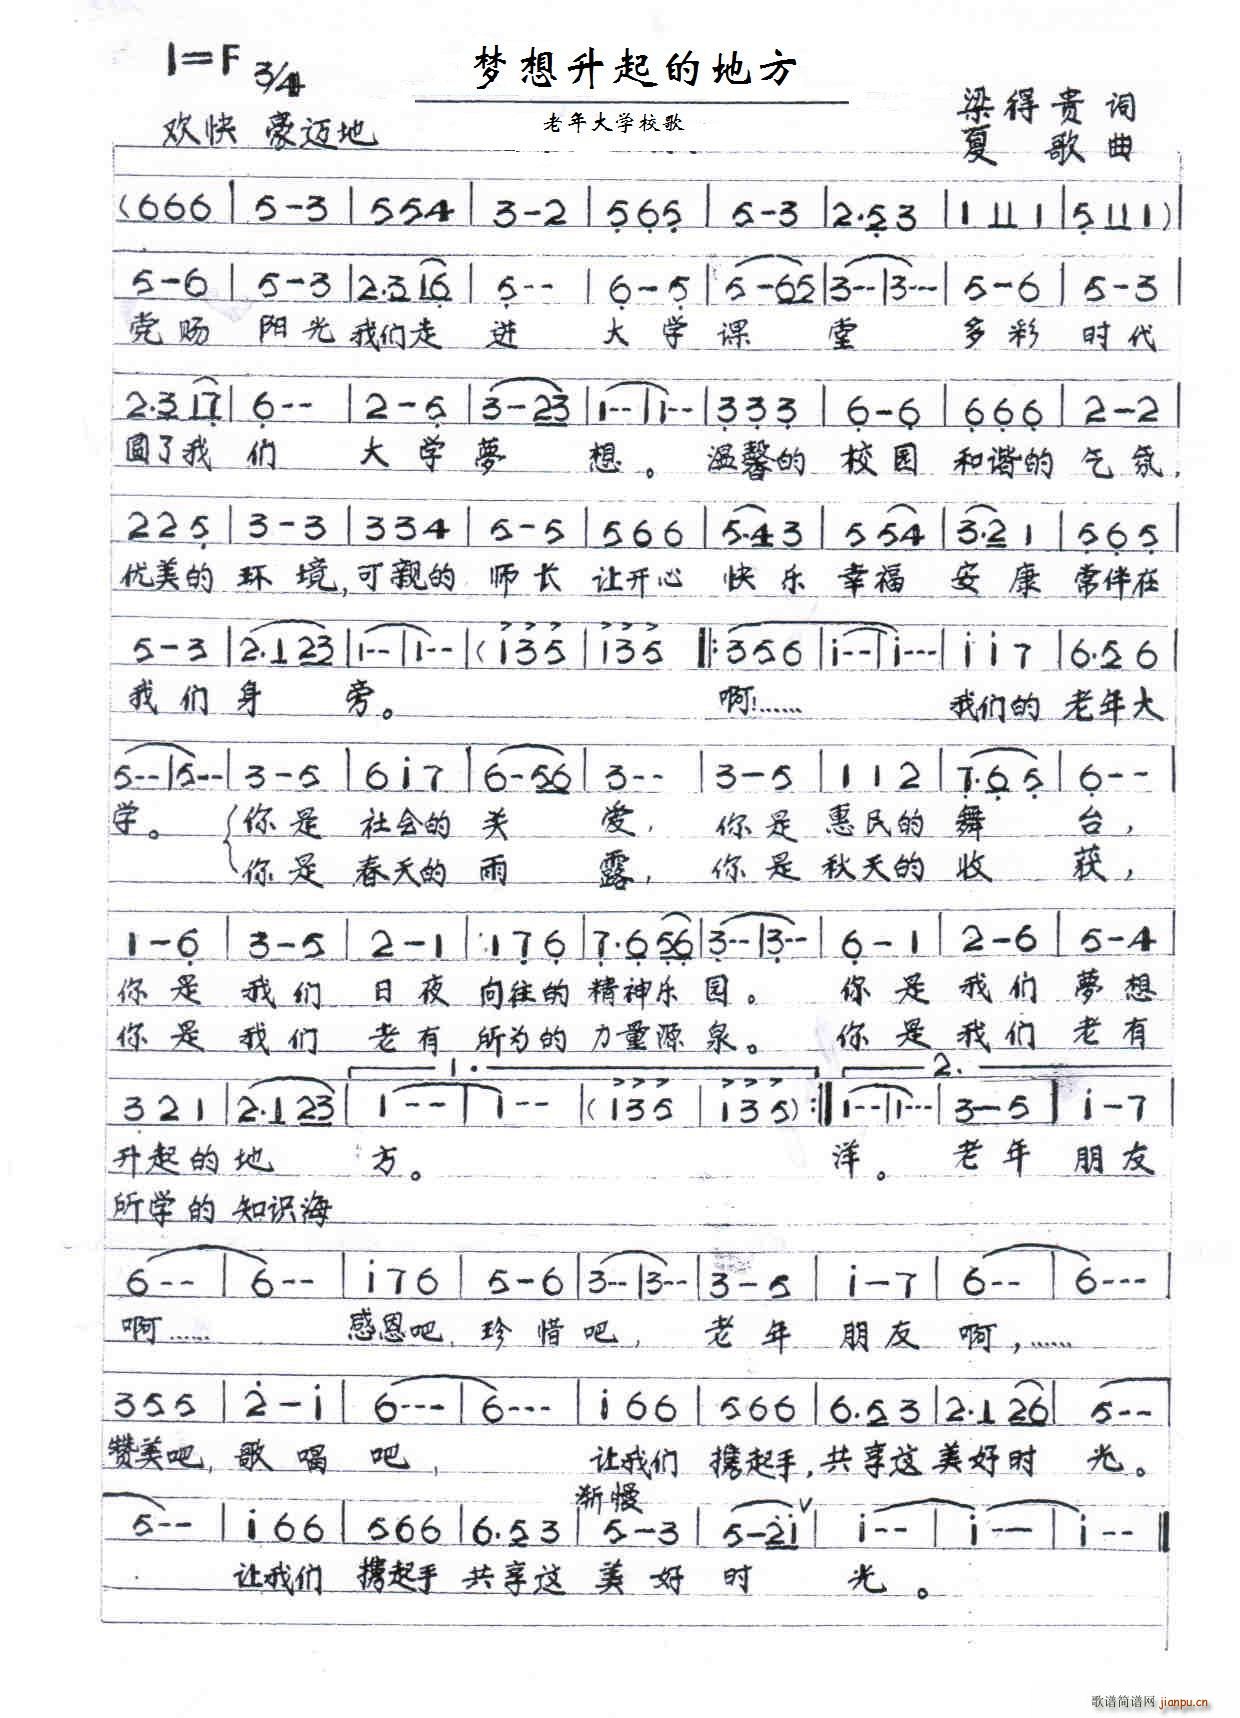 1=F 3/4
梦想升起的地方
老年大学校歌
欢快 豪迈地
梁得贵 词
夏歌 曲
(666 | 5-3 | 554 | 3-2 | 565 | 5-3 | 2·53 | 1 11 1 | 5 11 1)
5-6 | 5-3 | 2·316 | 5-- | 6-5 | 5-65 | 3-- | 3-- | 5-6 | 5-3
党赐 阳光 我们走 进 大学课 堂 多彩 时代
2·317 | 6-- | 2-5 | 3-23 | 1-- | 1-- | 333 | 6-6 | 666 | 2-2
圆了我 们 大学夢 想。温馨的 校园 和谐的 气氛,
225 | 3-3 | 334 | 5-5 | 566 | 5·43 | 554 | 3·21 | 565
优美的 环境,可亲的 师长 让开心 快乐 幸福 安康 常伴在
5-3 | 2·123 | 1-- | 1-- | (135 | 135 ‖: 356 | i-- | i--- | ii7 | 6·56
我们身 旁。 啊!…… 我们的 老年大
5-- | 5-- | 3-5 | 6i7 | 6-56 | 3-- | 3-5 | 112 | 7·65 | 6--
学。 你是 社会的 关 爱, 你是 惠民的 舞 台,
你是 春天的 雨 露, 你是 秋天的 收 获,
1-6 | 3-5 | 2-1 | 176 | 7·656 | 3-- | 3-- | 6-1 | 2-6 | 5-4
你是 我们 日夜 向往的 精神乐园。 你是 我们 夢想
你是 我们 老有 所为的 力量源泉。 你是 我们 老有
1. 2.
321 | 2·123 | 1-- | 1-- | (135 | 135) :‖ 1-- | 1-- | 3-5 | i-7
升起的 地 方。 洋。 老年 朋友
所学的 知识海
6-- | 6-- | i76 | 5-6 | 3-- | 3-- | 3-5 | i-7 | 6-- | 6---
啊…… 感恩吧, 珍惜吧, 老年 朋友 啊,……
355 | 2-i | 6--- | 6--- | i66 | 566 | 6·53 | 2·126 | 5--
赞美吧, 歌唱 吧, 让我们 携起手,共享这 美好时 光。
渐慢
5-- | i66 | 566 | 6·53 | 5-3 | 5-2i | i-- | i-- | i-- ‖
让我们 携起手 共享这 美好 时 光。
歌谱简谱网 jianpu.cn